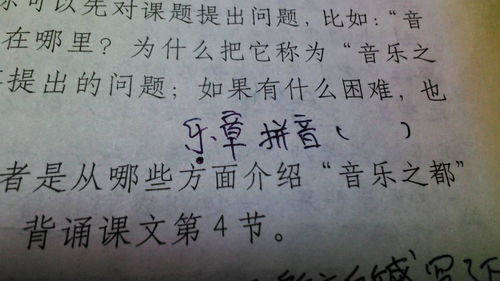 可以先对课题提出问题，比如：“音
在哪里？为什么把它称为“音乐之
提出的问题；如果有什么困难，也
乐章拼音（ ）
者是从哪些方面介绍“音乐之都”
背诵课文第4节。
写